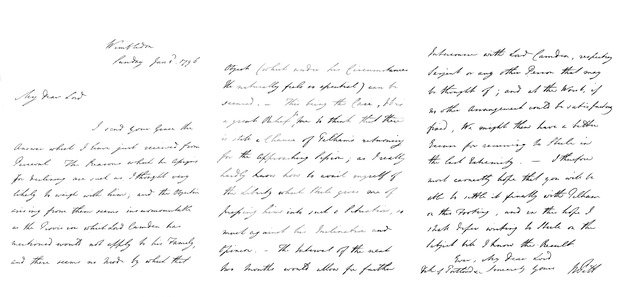 Wimbledon
Sunday Jan. 1796
My Dear Lord
I send your Grace the
Answer which I have just received from
Perceval The Reasons which he assigns
for declining are such as I thought very
likely to weigh with him, and the Objection
arising from them seems insurmountable
as the Provision which Lord Camden has
mentioned would not apply to his Family,
and there seems no mode by which that
Object (which under his Circumstances
He naturally feels so essential) can be
secured. - This being the Case, it is
a great Relief to me to think that there
is still a Chance of Pelham's returning
for the Approaching Session, as I really
hardly know how to avail myself of
the Liberty which Steele gives me of
pressing him into such a Situation, so
much against his Inclination and
Opinion. - The Interval of the next
two months would allow for further
Intercourse with Lord Camden, respecting
Serjeant or any other Person that may
be thought of; and at the Worst, if
no other Arrangement could be satisfactorily
fixed, We might then have a better
Reason for recurring to Steele in
the last Extremity. - I therefore
most earnestly hope that you will be
able to settle it finally with Pelham
on this Footing, and in this hope I
shall defer writing to Steele on the
Subject till I know the Result
Ever, My Dear Lord
Duke of Portland. Sincerely Yours W Pitt